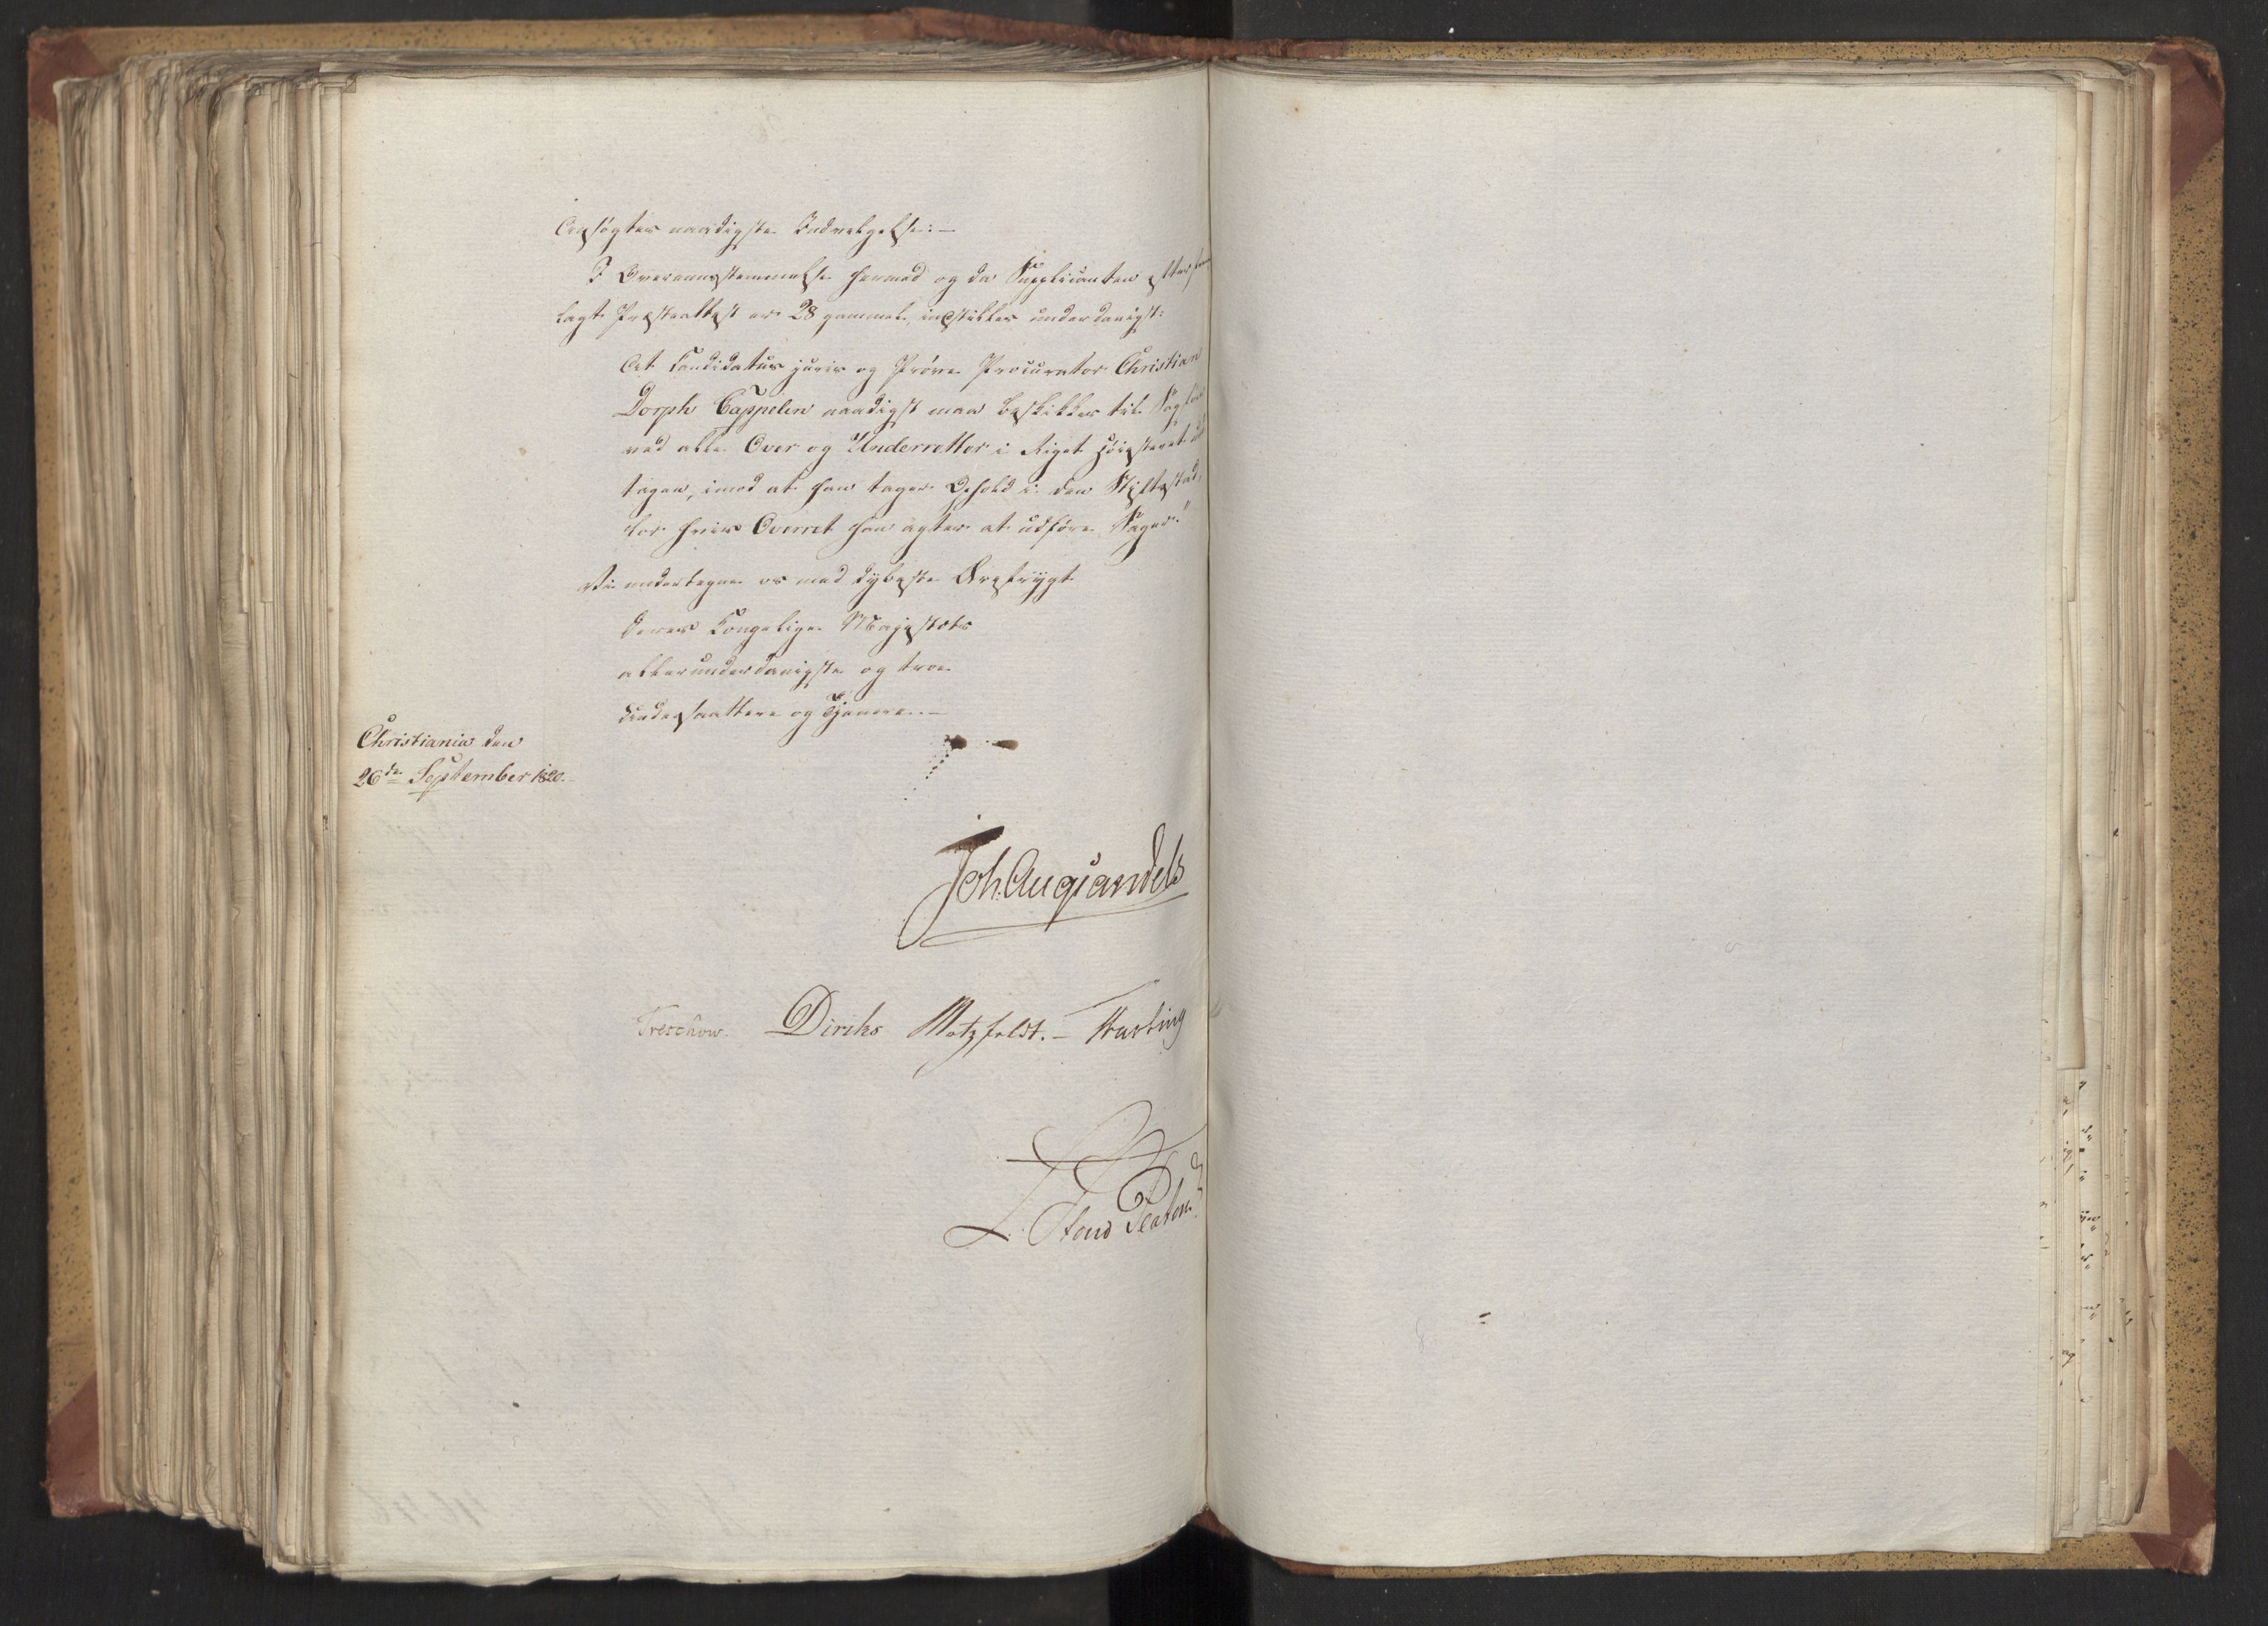 Ansøgtes naadigste Indvelgelse:—
I Overeensstemmelse hermed og da Supplicanten efter frem-
lagt Præsteattest er 28 gammel, indstilles underdanigst:
At Candidatus juris og Prøve Procurator Christian
Dorph Cappelen naadigst maa beskikkes til Sagfører
ved alle Over og Underretter i Riget Høiesteret und-
tagen, imod at han tager Ophold i den Stiftsstad,
for hvis Overret han agter at udføre Sager."
Vi undertegne os med dybeste Ærefrygt
Deres Kongelige Majestæts
allerunderdanigste og troe
Undersaattere og Tjenere.—
Christiania den
26de September 1820.
Joh. Aug Sandels
Treschow. Diriks Motzfeldt.— Fasting
L. Stoud Platou